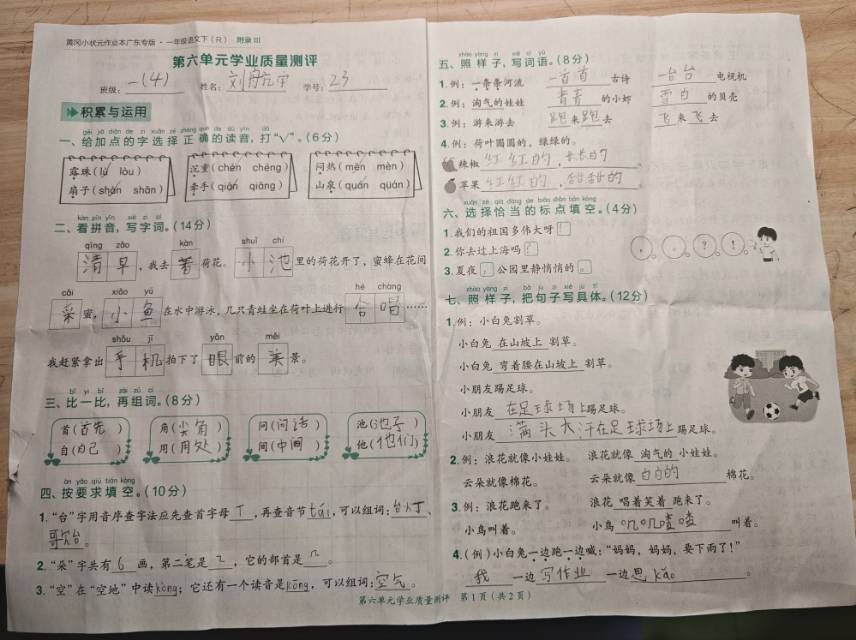 黄冈小状元作业本广东专版·一年级语文下（R） 附录III
第六单元学业质量测评
班级：一(4) 姓名： 学号：23
积累与运用
一、给加点的字选择正确的读音，打“√”。(6分)
露珠(lù lòu) 沉重(chén chéng) 闷热(mēn mèn)
扇子(shàn shān) 牵手(qiān qiāng) 山泉(quán qúan)
kàn pīn yīn xiě zì cí
二、看拼音，写字词。(14分)
qīng zǎo kàn shuǐ chí
清早，我去着荷花。小池里的荷花开了，蜜蜂在花间
cǎi xiǎo yú hé chàng
采蜜，小鱼在水中游泳，几只青蛙坐在荷叶上进行合唱……
shǒu jī yǎn měi
我赶紧拿出手机拍下了眼前的美景。
bǐ yi bǐ zài zǔ cí
三、比一比，再组词。(8分)
首(首先) 角(尖角) 问(问话) 池(池子)
自(自己) 用(用处) 间(中间) 他(他们)
àn yāo qiú tián kòng
四、按要求填空。(10分)
1.“台”字用音序查字法应先查首字母T，再查音节tái，可以组词：台灯、
。
2.“朵”字共有6画，第二笔是，它的部首是几。
3.“空”在“空地”中读kòng；它还有一个读音是kōng，可以组词：空气。
zhào yàng zi xiě cí yǔ
五、照样子，写词语。(8分)
1.例：一条条河流 一首首古诗 一台台电视机
2.例：淘气的娃娃 青青的小虾 雪白的贝壳
3.例：游来游去 跑来跑去 飞来飞去
4.例：荷叶圆圆的，绿绿的。
辣椒红红的，长长的。
苹果红红的，甜甜的。
xuǎn zé qià dàng de biāo diǎn tián kòng
六、选择恰当的标点填空。(4分)
1.我们的祖国多伟大呀！
2.你去过上海吗？ ， 。 ？ ！
3.夏夜，公园里静悄悄的。
zhào yàng zi bǎ jù zi xiě jù tǐ
七、照样子，把句子写具体。(12分)
1.例：小白兔割草。
小白兔 在山坡上 割草。
小白兔 弯着腰在山坡上 割草。
小朋友踢足球。
小朋友 在足球场上踢足球。
小朋友 满头大汗在足球场上踢足球。
2.例：浪花就像小娃娃。 浪花就像 淘气的 小娃娃。
云朵就像棉花。 云朵就像 白白的 棉花。
3.例：浪花跑来了。 浪花 唱着笑着 跑来了。
小鸟叫着。 小鸟 叽叽喳喳 叫着。
4.(例)小白兔一边跑一边喊：“妈妈，妈妈，要下雨了！”
我 一边写作业 一边思kǎo。
第六单元学业质量测评 第1页（共2页）